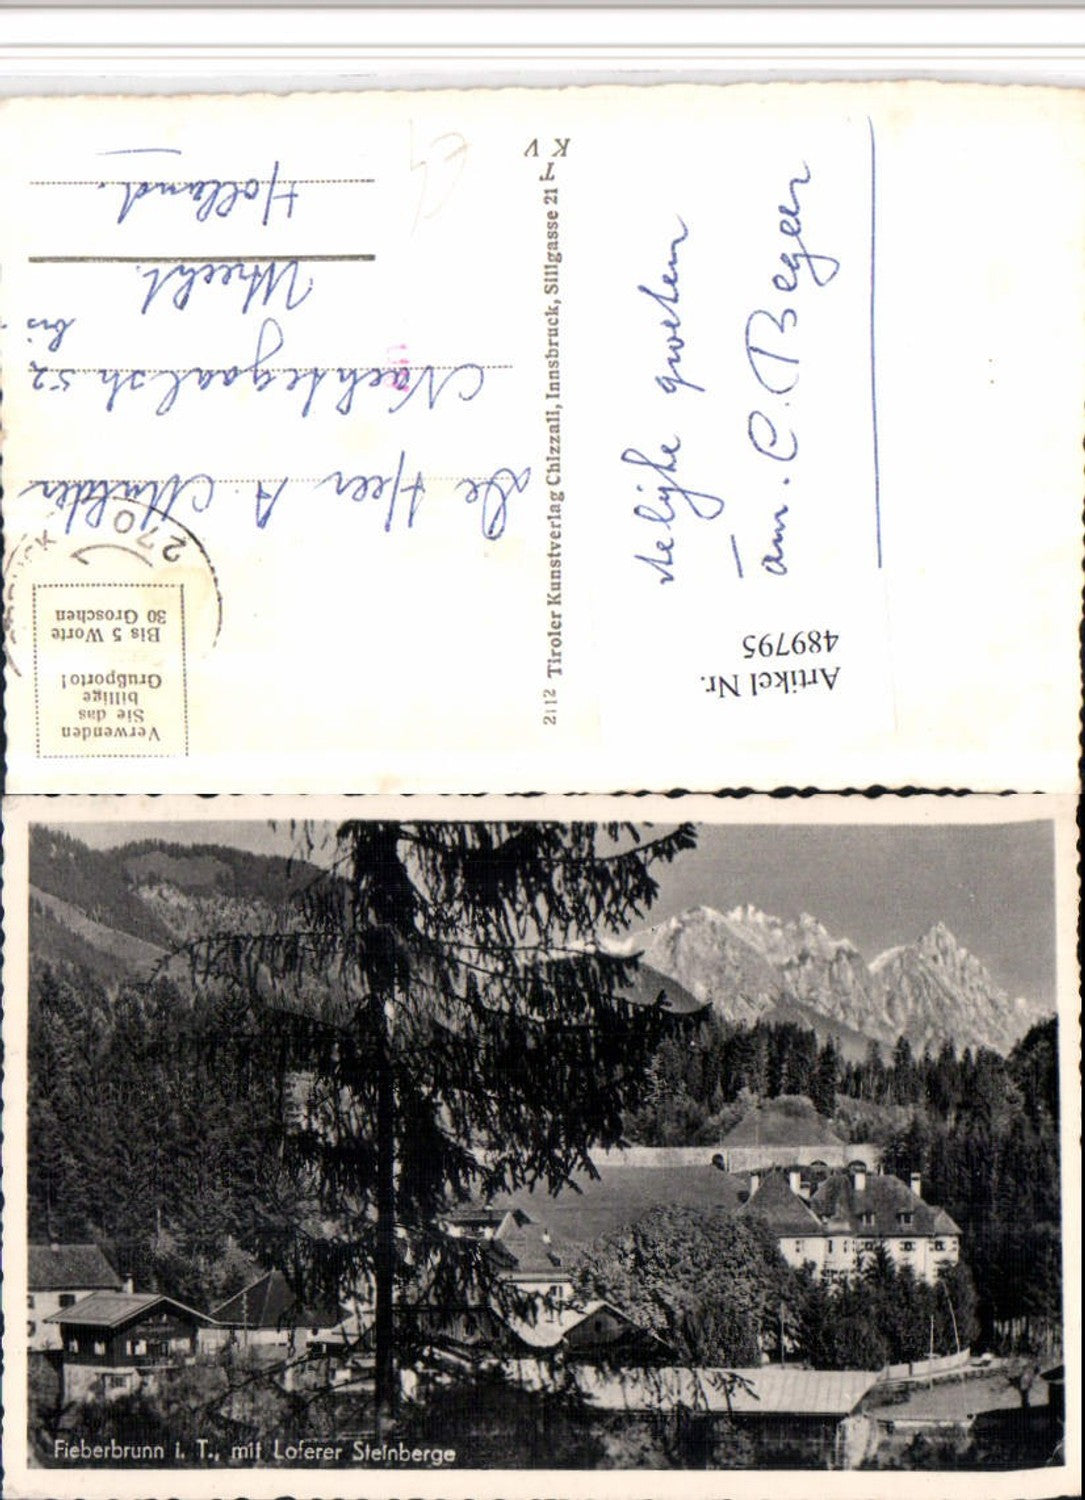 Verwenden
Sie das
billige
Grußporto!
Bis 5 Worte
30 Groschen
270
de Heer A. Mulder
Nachtegaalstr 52
bis.
Utrecht.
Holland.
2112 Tiroler Kunstverlag Chizzali, Innsbruck, Sillgasse 21
T
K V
groeten
C. Begeer
Artikel Nr.
489795
Fieberbrunn i. T., mit Loferer Steinberge